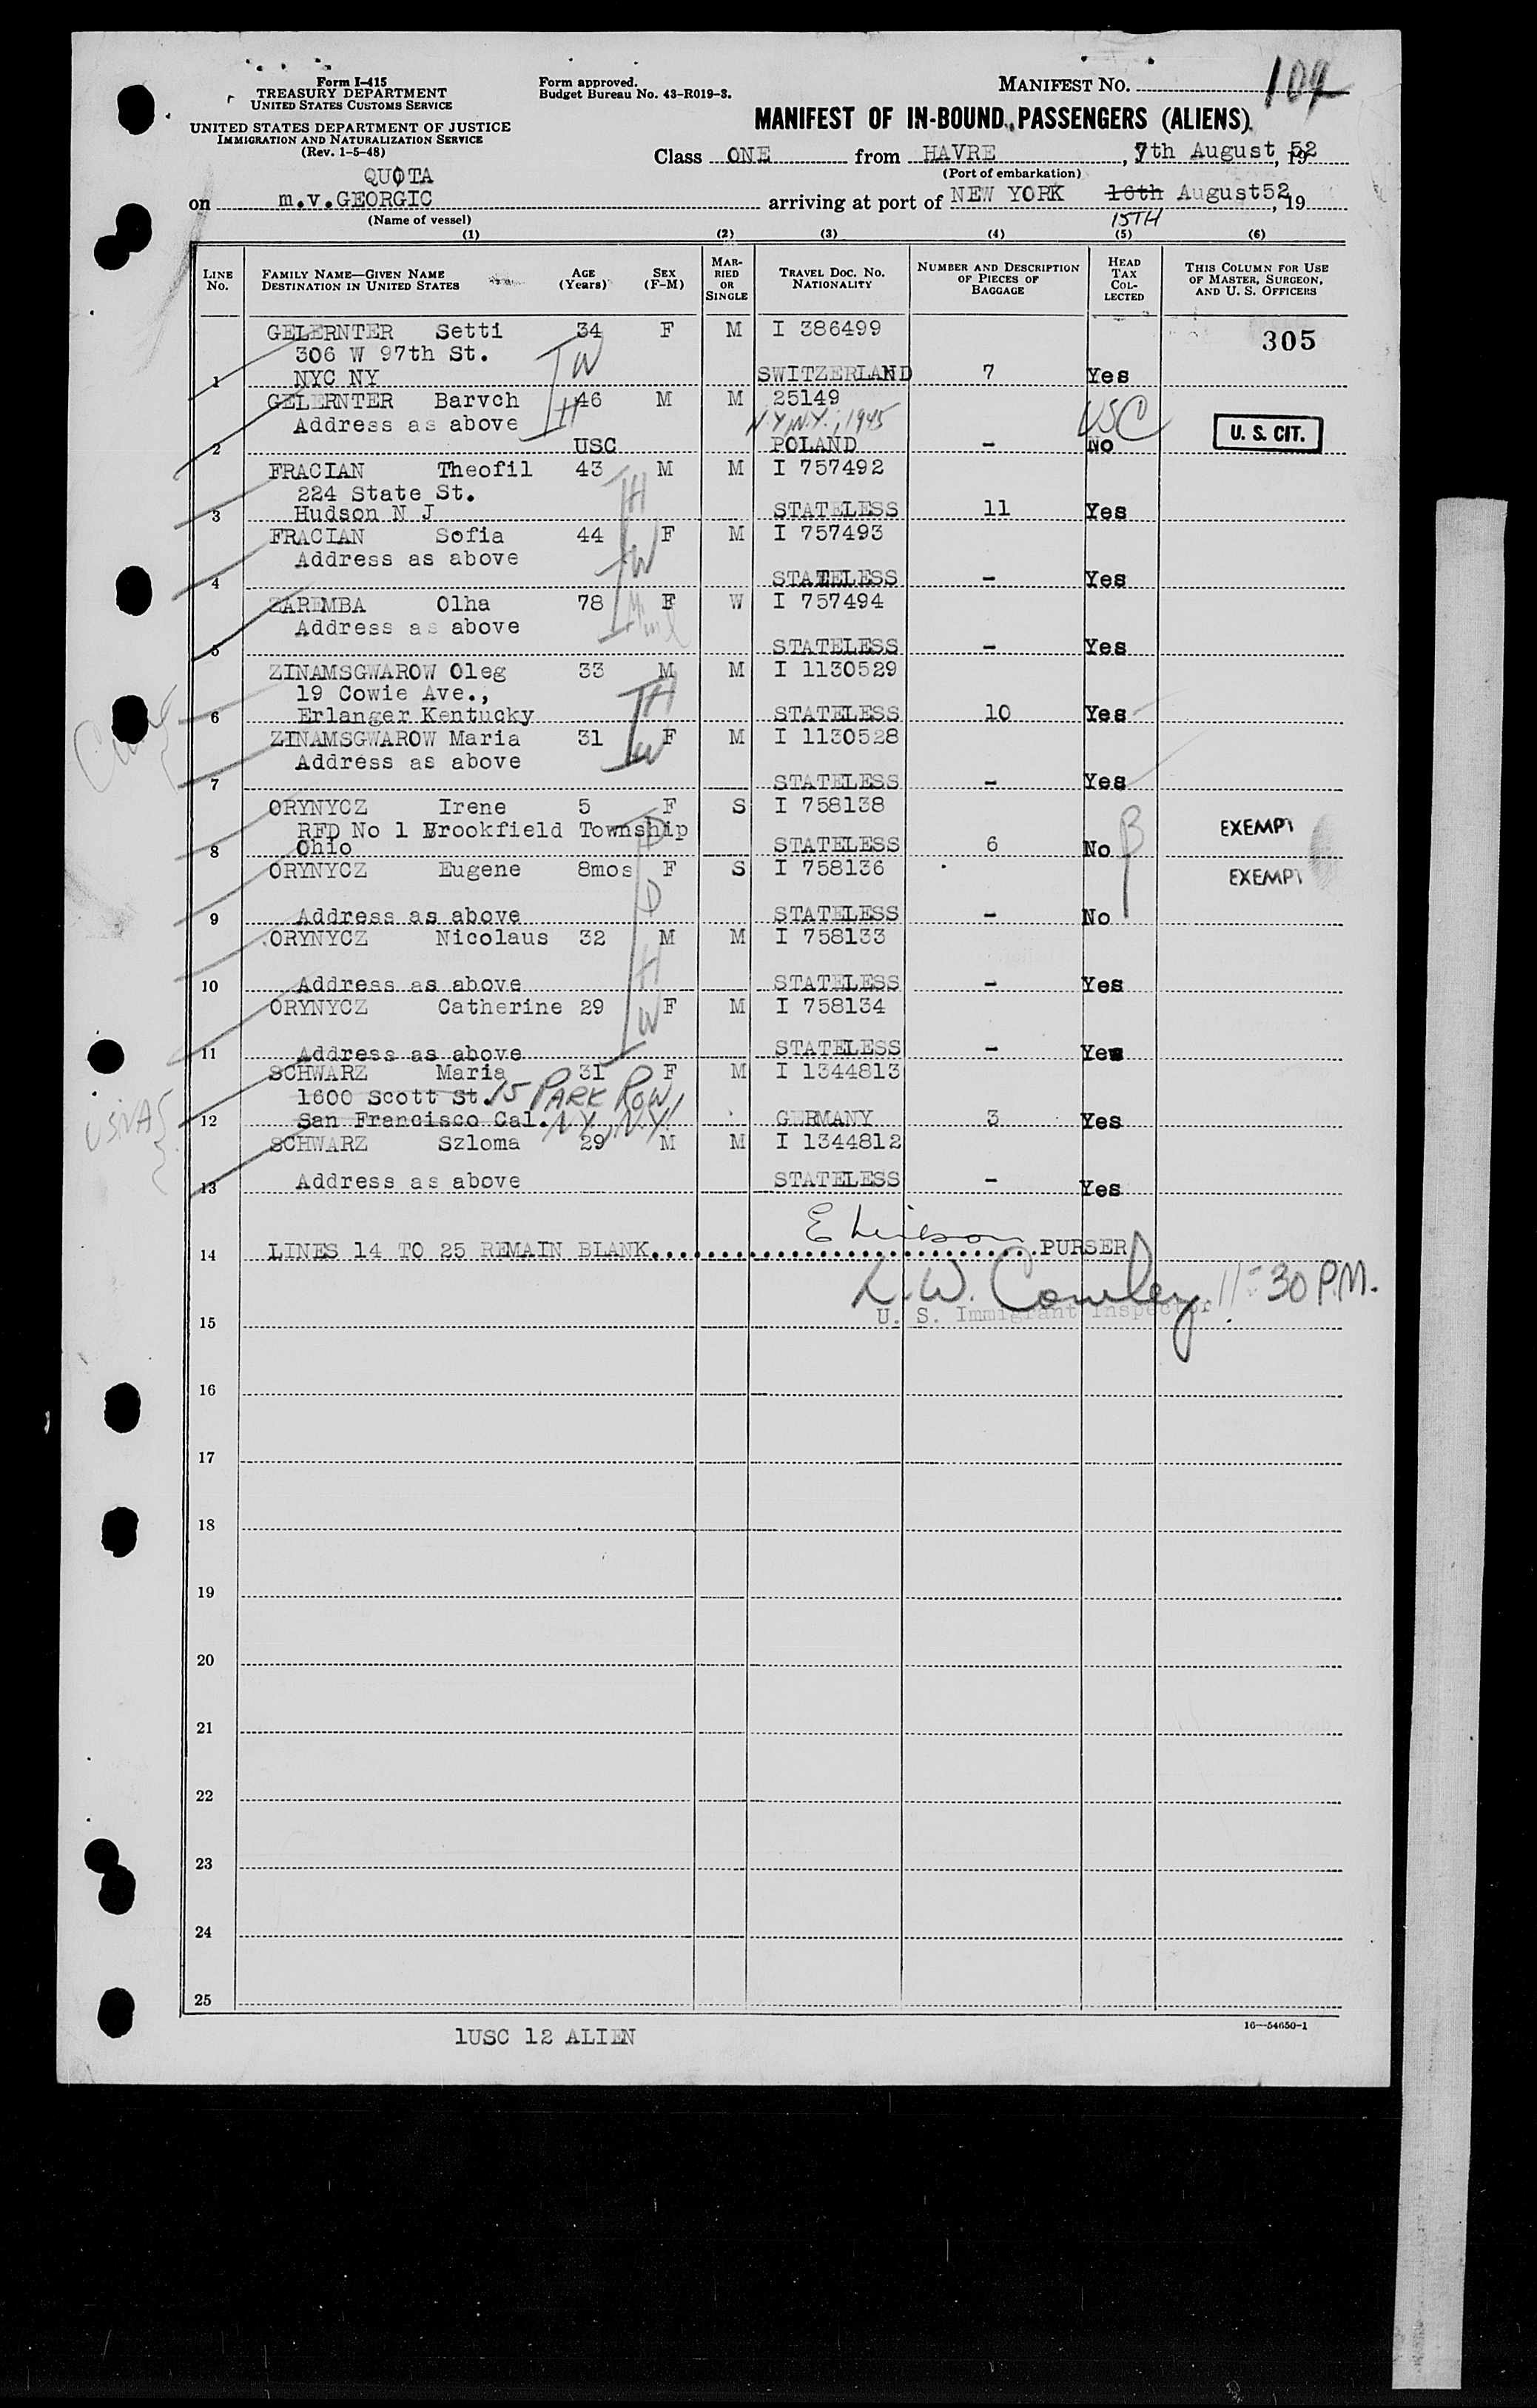 Form I-415
TREASURY DEPARTMENT
UNITED STATES CUSTOMS SERVICE
UNITED STATES DEPARTMENT OF JUSTICE
IMMIGRATION AND NATURALIZATION SERVICE
(Rev. 1-5-48)
Form approved.
Budget Bureau No. 43-R019-3.
MANIFEST No. 104
MANIFEST OF IN-BOUND PASSENGERS (ALIENS)
Class ONE from HAVRE, 7th August, 1952
(Port of embarkation)
QUOTA
on m.v.GEORGIC arriving at port of NEW YORK 16th August52, 19
15TH
(Name of vessel)
(1) (2) (3) (4) (5) (6)
LINE No. FAMILY NAME—GIVEN NAME DESTINATION IN UNITED STATES AGE (Years) SEX (F-M) MARRIED OR SINGLE TRAVEL DOC. No. NATIONALITY NUMBER AND DESCRIPTION OF PIECES OF BAGGAGE HEAD TAX COLLECTED THIS COLUMN FOR USE OF MASTER, SURGEON, AND U. S. OFFICERS
GELERNTER Setti 34 F M I 386499 305
306 W 97th St. W
1 NYC NY SWITZERLAND 7 Yes
GELERNTER Barvch 46 M M 25149
Address as above H N.Y.N.Y., 1945 USC U. S. CIT.
2 USC POLAND - No
FRACIAN Theofil 43 M M I 757492
224 State St. H
3 Hudson N J STATELESS 11 Yes
FRACIAN Sofia 44 F M I 757493
Address as above W
4 STATELESS - Yes
ZAREMBA Olha 78 F W I 757494
Address as above
5 STATELESS - Yes
ZINAMSGWAROW Oleg 33 M M I 1130529
19 Cowie Ave., H
6 Erlanger Kentucky STATELESS 10 Yes
ZINAMSGWAROW Maria 31 F M I 1130528
Address as above W
7 STATELESS - Yes
ORYNYCZ Irene 5 F S I 758138
RFD No 1 Brookfield Township D B EXEMPT
8 Ohio STATELESS 6 No
ORYNYCZ Eugene 8mos F S I 758136 EXEMPT
D
9 Address as above STATELESS - No
ORYNYCZ Nicolaus 32 M M I 758133
H
10 Address as above STATELESS - Yes
ORYNYCZ Catherine 29 F M I 758134
W
11 Address as above STATELESS - Yes
SCHWARZ Maria 31 F M I 1344813
1600 Scott St. 15 PARK ROW,
USNA
12 San Francisco Cal. N.Y., N.Y. GERMANY 3 Yes
SCHWARZ Szloma 29 M M I 1344812
13 Address as above STATELESS - Yes
14 LINES 14 TO 25 REMAIN BLANK PURSER
L.W. Cowley 11-30 P.M.
U. S. Immigrant Inspector
15
16
17
18
19
20
21
22
23
24
25
1USC 12 ALIEN
16—54650-1